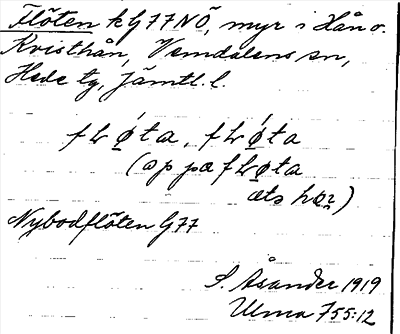 Flöten k G 77 NÖ, myr i Hån o.
Kvisthån, Vemdalens sn,
Hede tg, Jämtl. l.
fLǫ́ta, fLǫ́ta
(op pæ fLǫta
æts hǫ̤r)
Nybodflöten G 77
S. Åsander 1919
Ulma 755:12